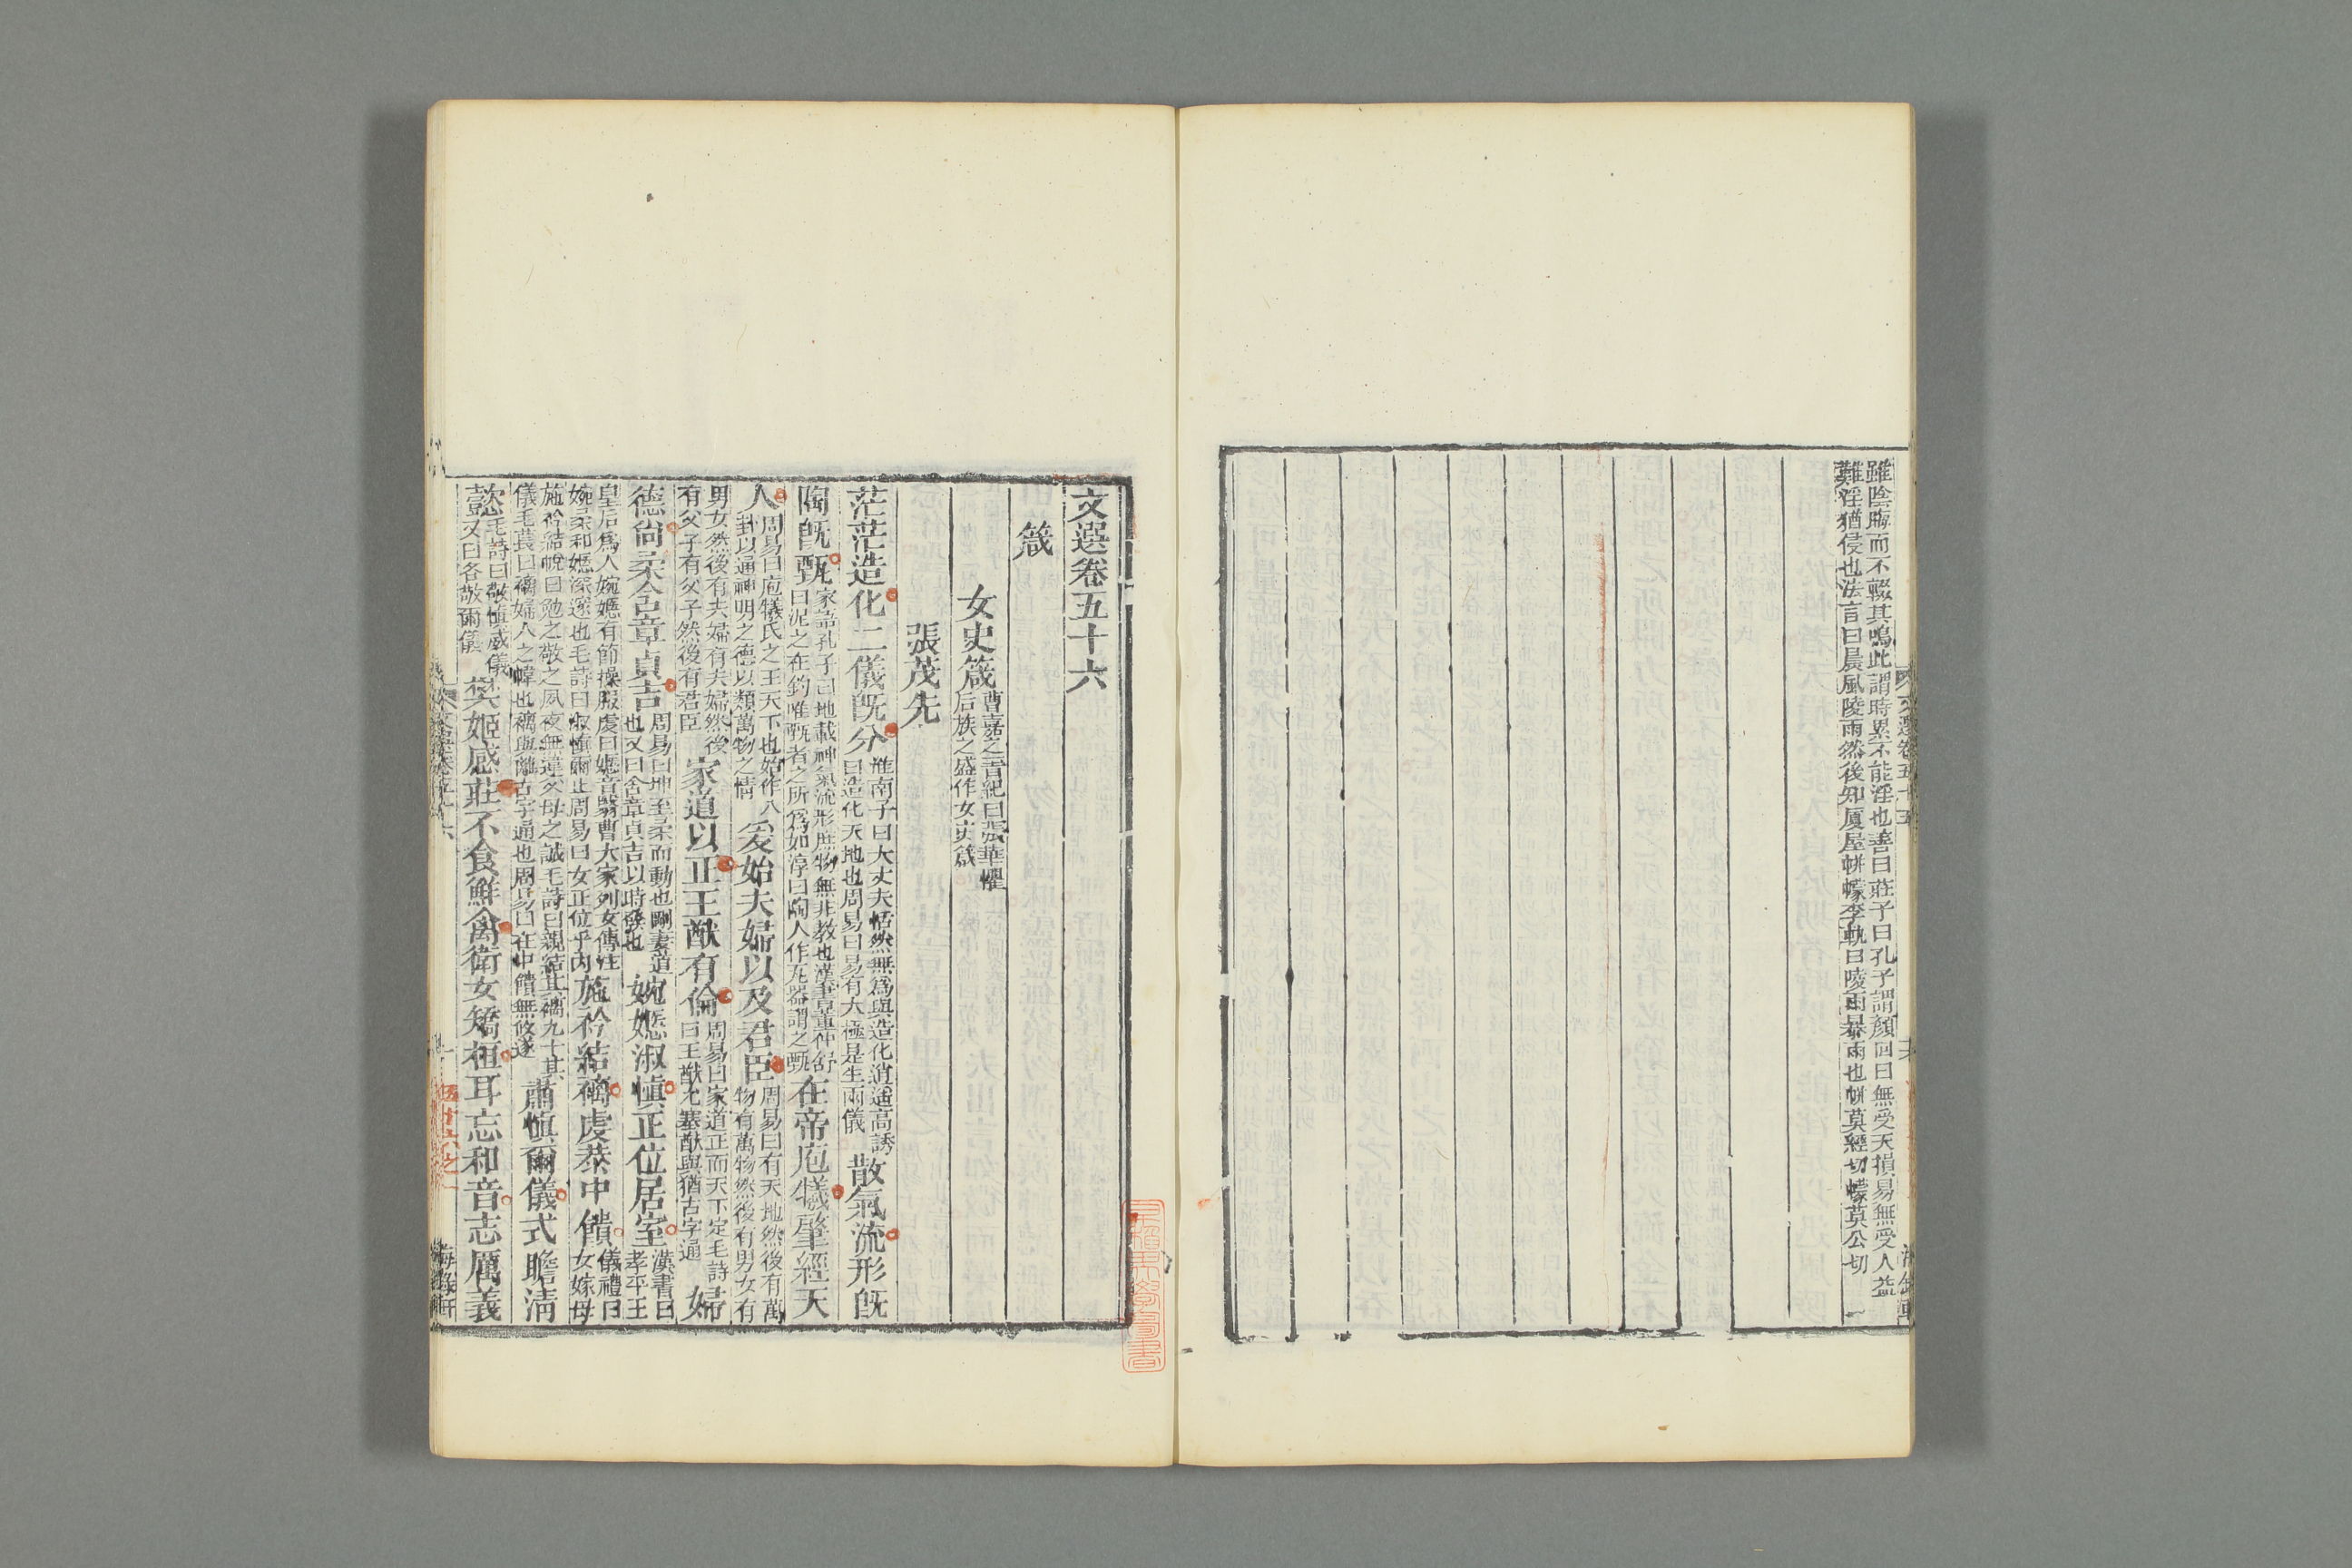 雖陰晦而不輟其鳴此謂時累不能淫也善曰莊子曰孔子謂顏回曰無受天損易無受人益
難淫猶侵也法言曰晨風陵雨然後知厦屋帡幪李軌曰陵雨暴雨也帡莫經切幪莫公切
文選卷五十六
箴
女史箴曹嘉之晉紀曰張華懼
后族之盛作女史箴
張茂先
茫茫造化二儀旣分淮南子曰大丈夫恬然無爲與造化逍遙高誘
曰造化天地也周易曰易有大極是生兩儀散氣流形旣
陶旣甄家語孔子曰地載神氣流形庶物無非教也漢書董仲舒
曰泥之在鈞唯甄者之所爲如淳曰陶人作瓦器謂之甄在帝庖犧肇經天
人周易曰庖犧氏之王天下也始作八
卦以通神明之德以類萬物之情爰始夫婦以及君臣周易曰有天地然後有萬
物有萬物然後有男女有
男女然後有夫婦有夫婦然後
有父子有父子然後有君臣家道以正王猷有倫周易曰家道正而天下定毛詩
曰王猷允塞猷與猶古字通婦
德尙柔含章貞吉周易曰坤至柔而動也剛妻道
也又曰含章貞吉以時發也婉嫕淑愼正位居室漢書曰
孝平王
皇后爲人婉嫕有節操服虔曰嫕音翳曹大家列女傳注
婉柔和嫕深邃也毛詩曰淑愼爾止周易曰女正位乎內施衿結褵虔恭中饋儀禮曰
女嫁母
施衿結帨曰勉之敬之夙夜無違父母之誡毛詩曰親結其褵九十其
儀毛萇曰褵婦人之幃也褵與離古字通也周易曰在中饋無攸遂肅愼爾儀式瞻淸
懿毛詩曰敬愼威儀
又曰各敬爾儀樊姬感莊不食鮮禽衛女矯桓耳忘和音志厲義